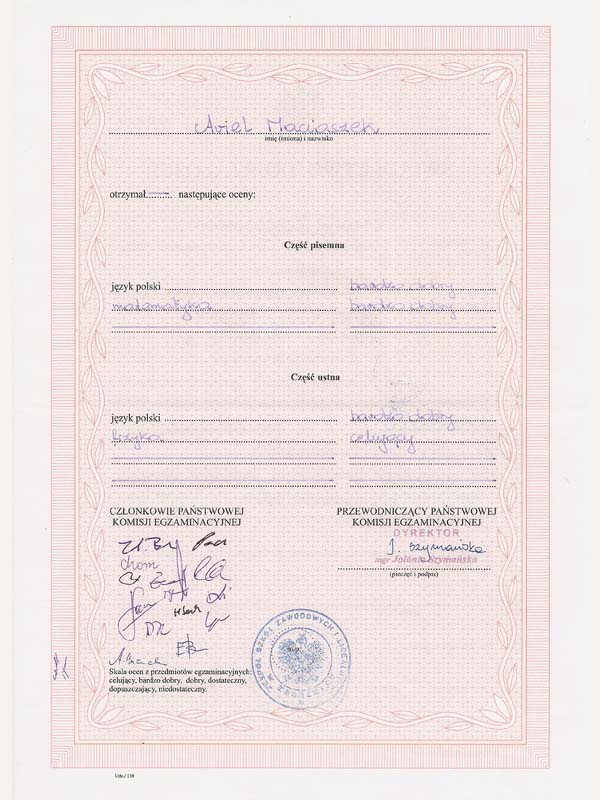 Ariel Maciaszek
imię (imiona) i nazwisko
otrzymał.......... następujące oceny:
Część pisemna
język polski bardzo dobry
matematyka bardzo dobry
Część ustna
język polski bardzo dobry
fizyka celujący
CZŁONKOWIE PAŃSTWOWEJ
KOMISJI EGZAMINACYJNEJ
PRZEWODNICZĄCY PAŃSTWOWEJ
KOMISJI EGZAMINACYJNEJ
DYREKTOR
J. Szymańska
mgr Jolanta Szymańska
(pieczęć i podpis)
ZESPÓŁ SZKÓŁ ZAWODOWYCH I
m.p.
Skala ocen z przedmiotów egzaminacyjnych:
celujący, bardzo dobry, dobry, dostateczny,
dopuszczający, niedostateczny.